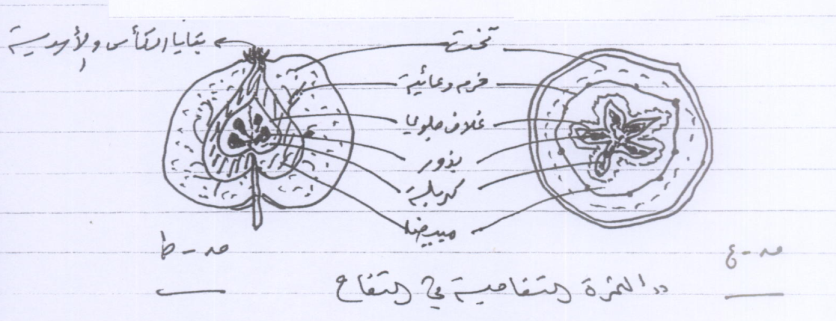 بقايا الكأس والأسدية
تخت
حزم وعائية
غلاف جيلوبي
بذور
كربلة
مبيض
مـ - ط
مـ - ع
"الثمرة التفاحية في التفاح